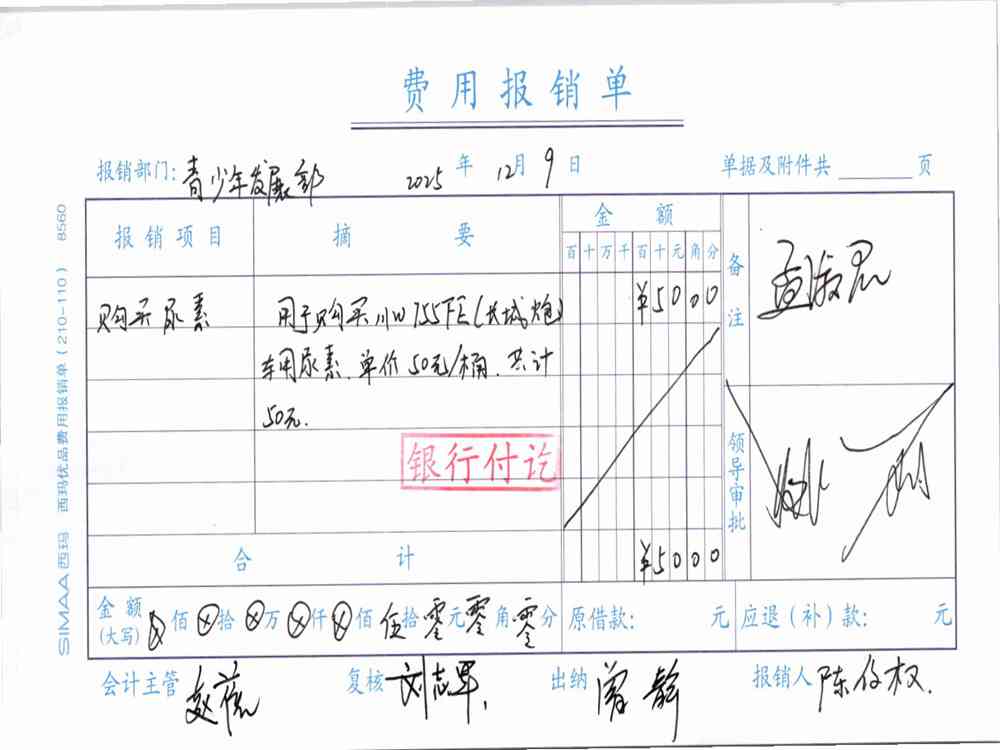 费用报销单
报销部门：青少年发展部 2025 年 12月 9 日 单据及附件共 页
报销项目 摘要 金额 备注
百十万千百十元角分
购买尿素 用于购买川W755FE(长城炮) ¥5000
车用尿素.单价50元/桶.共计
50元.
银行付讫
领导审批
合计 ¥5000
金额(大写) ⊗佰⊗拾⊗万⊗仟⊗佰伍拾零元零角零分 原借款： 元 应退（补）款： 元
会计主管 复核 刘志军 出纳 曾静 报销人 陈
SIMAA 西玛 西玛优品费用报销单（210-110） 8560